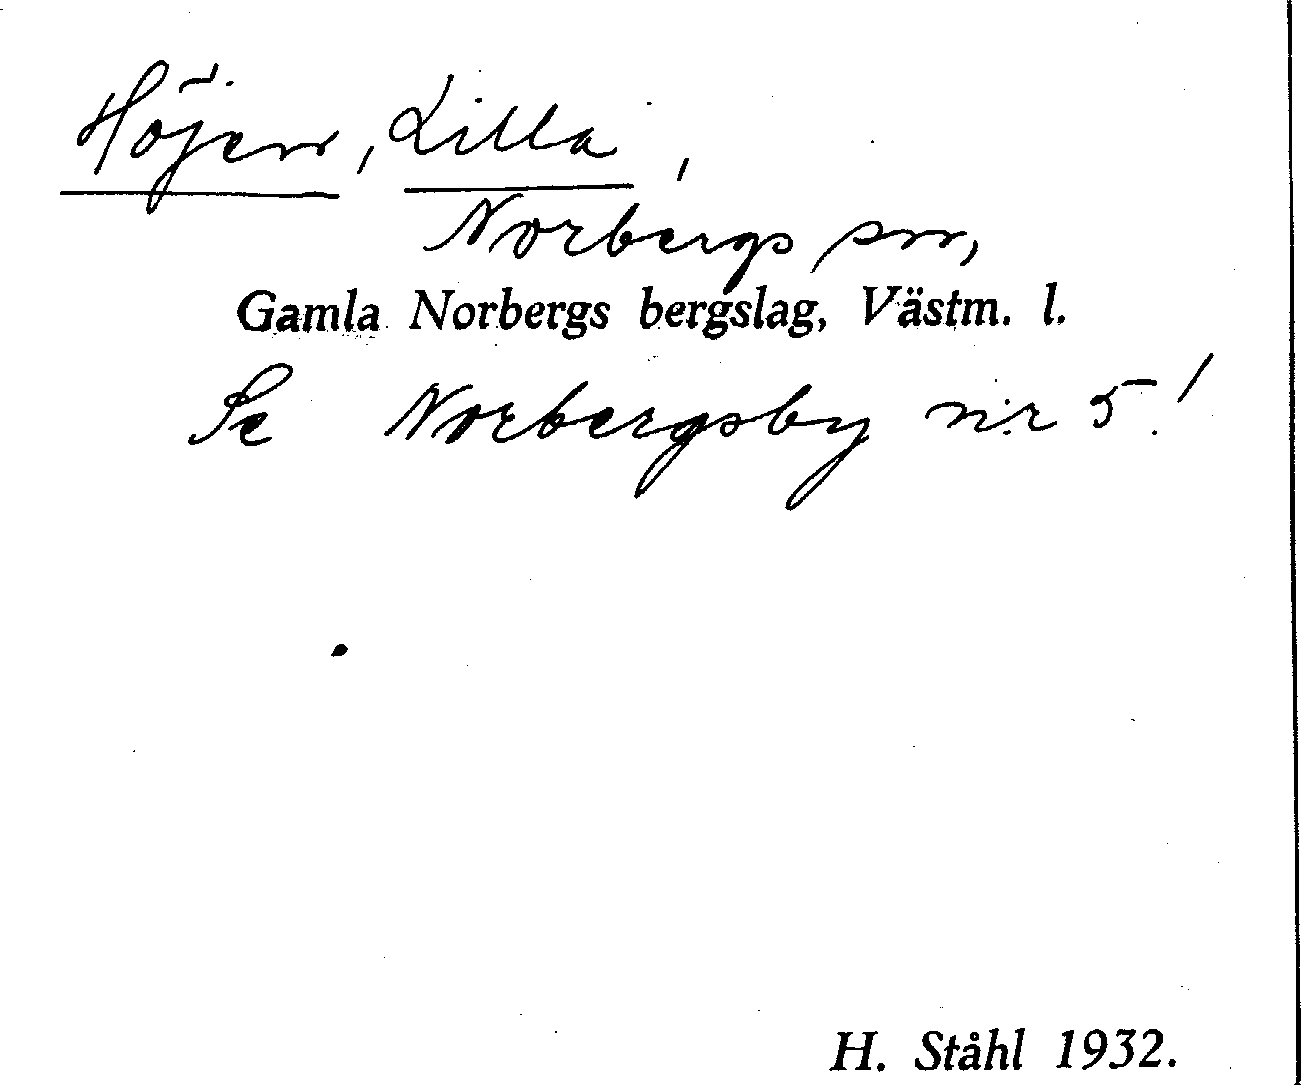 Höjen, Lilla,
Norbergs sn,
Gamla Norbergs bergslag, Västm. l.
Se Norbergsby nr 5!
H. Ståhl 1932.